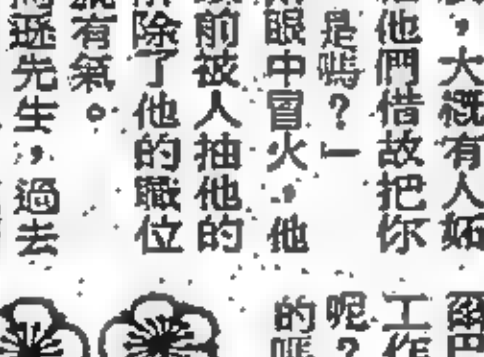 ，大概有人妬
他們借故把你
是嗎？」
眼中冒火，他
前被人抽他的
除了他的職位
有氣。
遜先生，過去
巴
工作
呢？
的